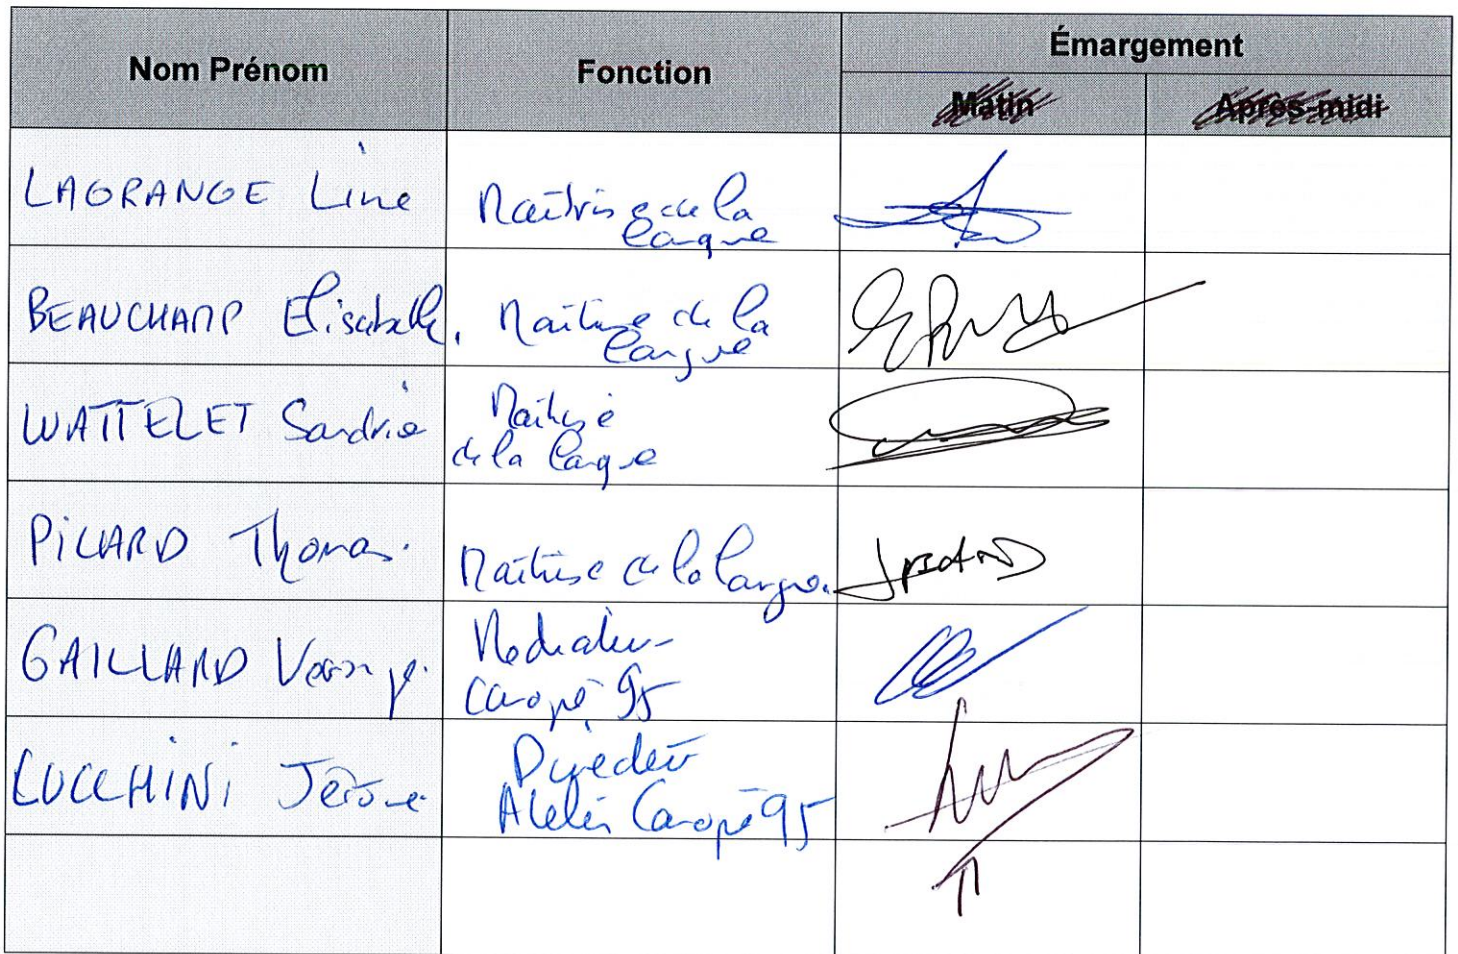 Nom Prénom Fonction Émargement
Matin Après-midi
LAGRANGE Line Maîtrise de la
langue
BEAUCHAMP Élisabeth. Maîtrise de la
langue
WATTELET Sandrine Maîtrise
de la langue
PICARD Thomas. Maîtrise de la langue.
GAILLARD Médiateur
Canopé 95
LUCCHINI Jérôme Directeur
Atelier Canopé 95